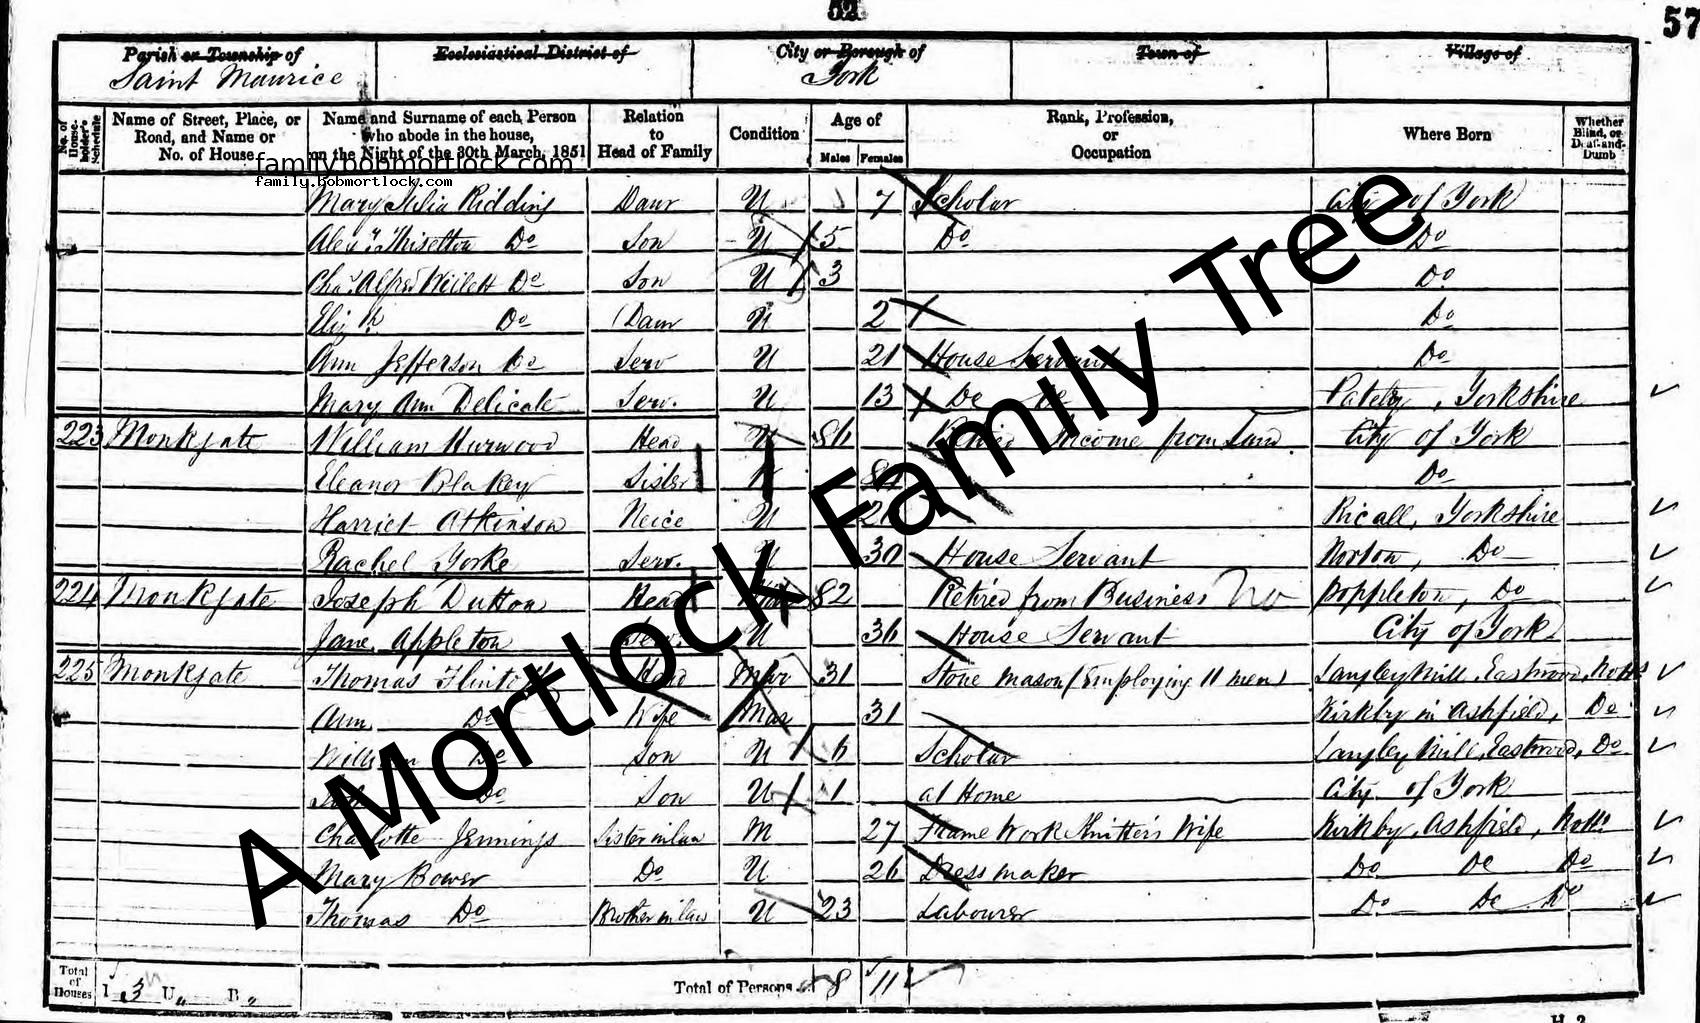 52
57
Parish or Township of Ecclesiastical District of City or Borough of Town of Village of
Saint Maurice York
No. of House-holder's Schedule Name of Street, Place, or Road, and Name or No. of House Name and Surname of each Person who abode in the house, on the Night of the 30th March, 1851 Relation to Head of Family Condition Age of Males Females Rank, Profession, or Occupation Where Born Whether Blind, or Deaf-and-Dumb
family.bobmortlock.com
family.bobmortlock.com
Mary Julia Ridding Daur U 7 Scholar City of York
Thiselton Do Son U 5 Do Do
Chas. Alfred Do Son U 3 Do
Eliz Do Daur U 2 Do
Ann Jefferson Do Serv U 21 House Servant Do
Mary Ann Delicate Serv. U 13 Do Do Pateley, Yorkshire
223 Monkgate William Harwood Head 86 Income from Land City of York
Eleanor Blakey Sister Do
Harriet Atkinson Neice U Ricall, Yorkshire
Rachel Yorke Serv. U 30 House Servant Norton, Do
224 Monkgate Joseph Dutton Head 82 Retired from Business No Poppleton, Do
Jane Appleton Serv. U 36 House Servant City of York
225 Monkgate Thomas Head Mar 31 Stone mason (Employing 11 men) Langley Mill, Eastwood, Notts
Ann Do Wife Mar 31 Kirkby in Ashfield, Do
William Do Son U 6 Scholar Langley Mill, Eastwood, Do
Do Son U 1 at Home City of York
Charlotte Jennings Sister in law M 27 Frame Work Knitter's Wife Kirkby, Ashfield, Notts
Mary Bower Do U 26 Dress maker Do Do Do
Thomas Do Brother in law U 23 Labourer Do Do Do
Total of Houses I 3 U B Total of Persons 8 11
A Mortlock Family Tree